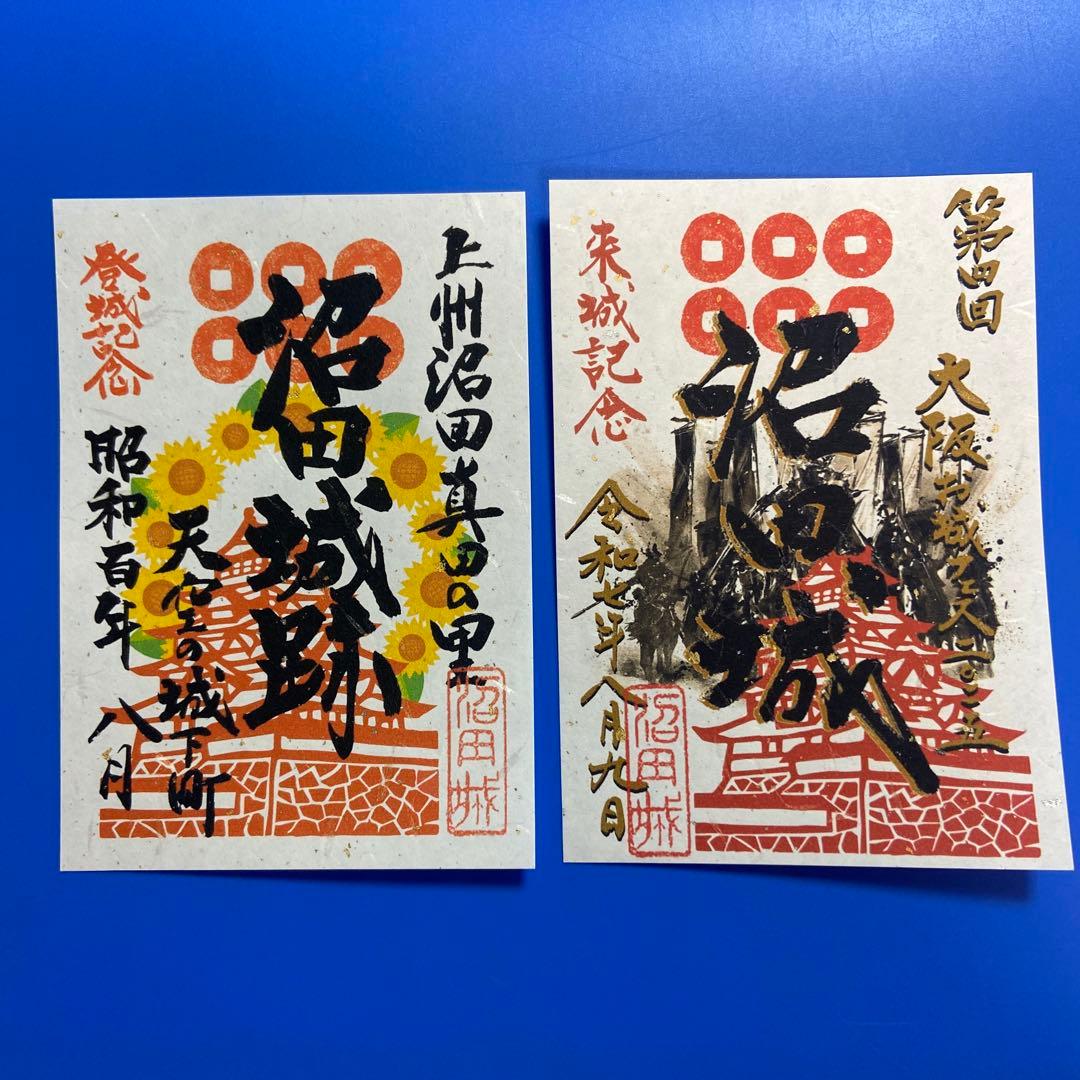 上州沼田真田の里
沼田城跡
天空の城下町
登城記念
昭和百年 八月
沼田城
第四回
大阪お城フェス二〇二五
沼田城
来城記念
令和七年八月九日
沼田城